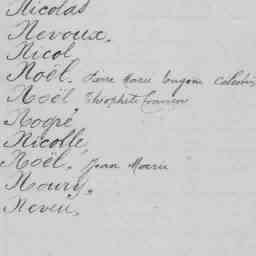 Nicolas
Nevoux.
Nicol
Noël. Marie Eugène Célestin
Noël, Théophile
Nogré
Nicolle,
Noël, Jean Marie
Noury.
Neveu,